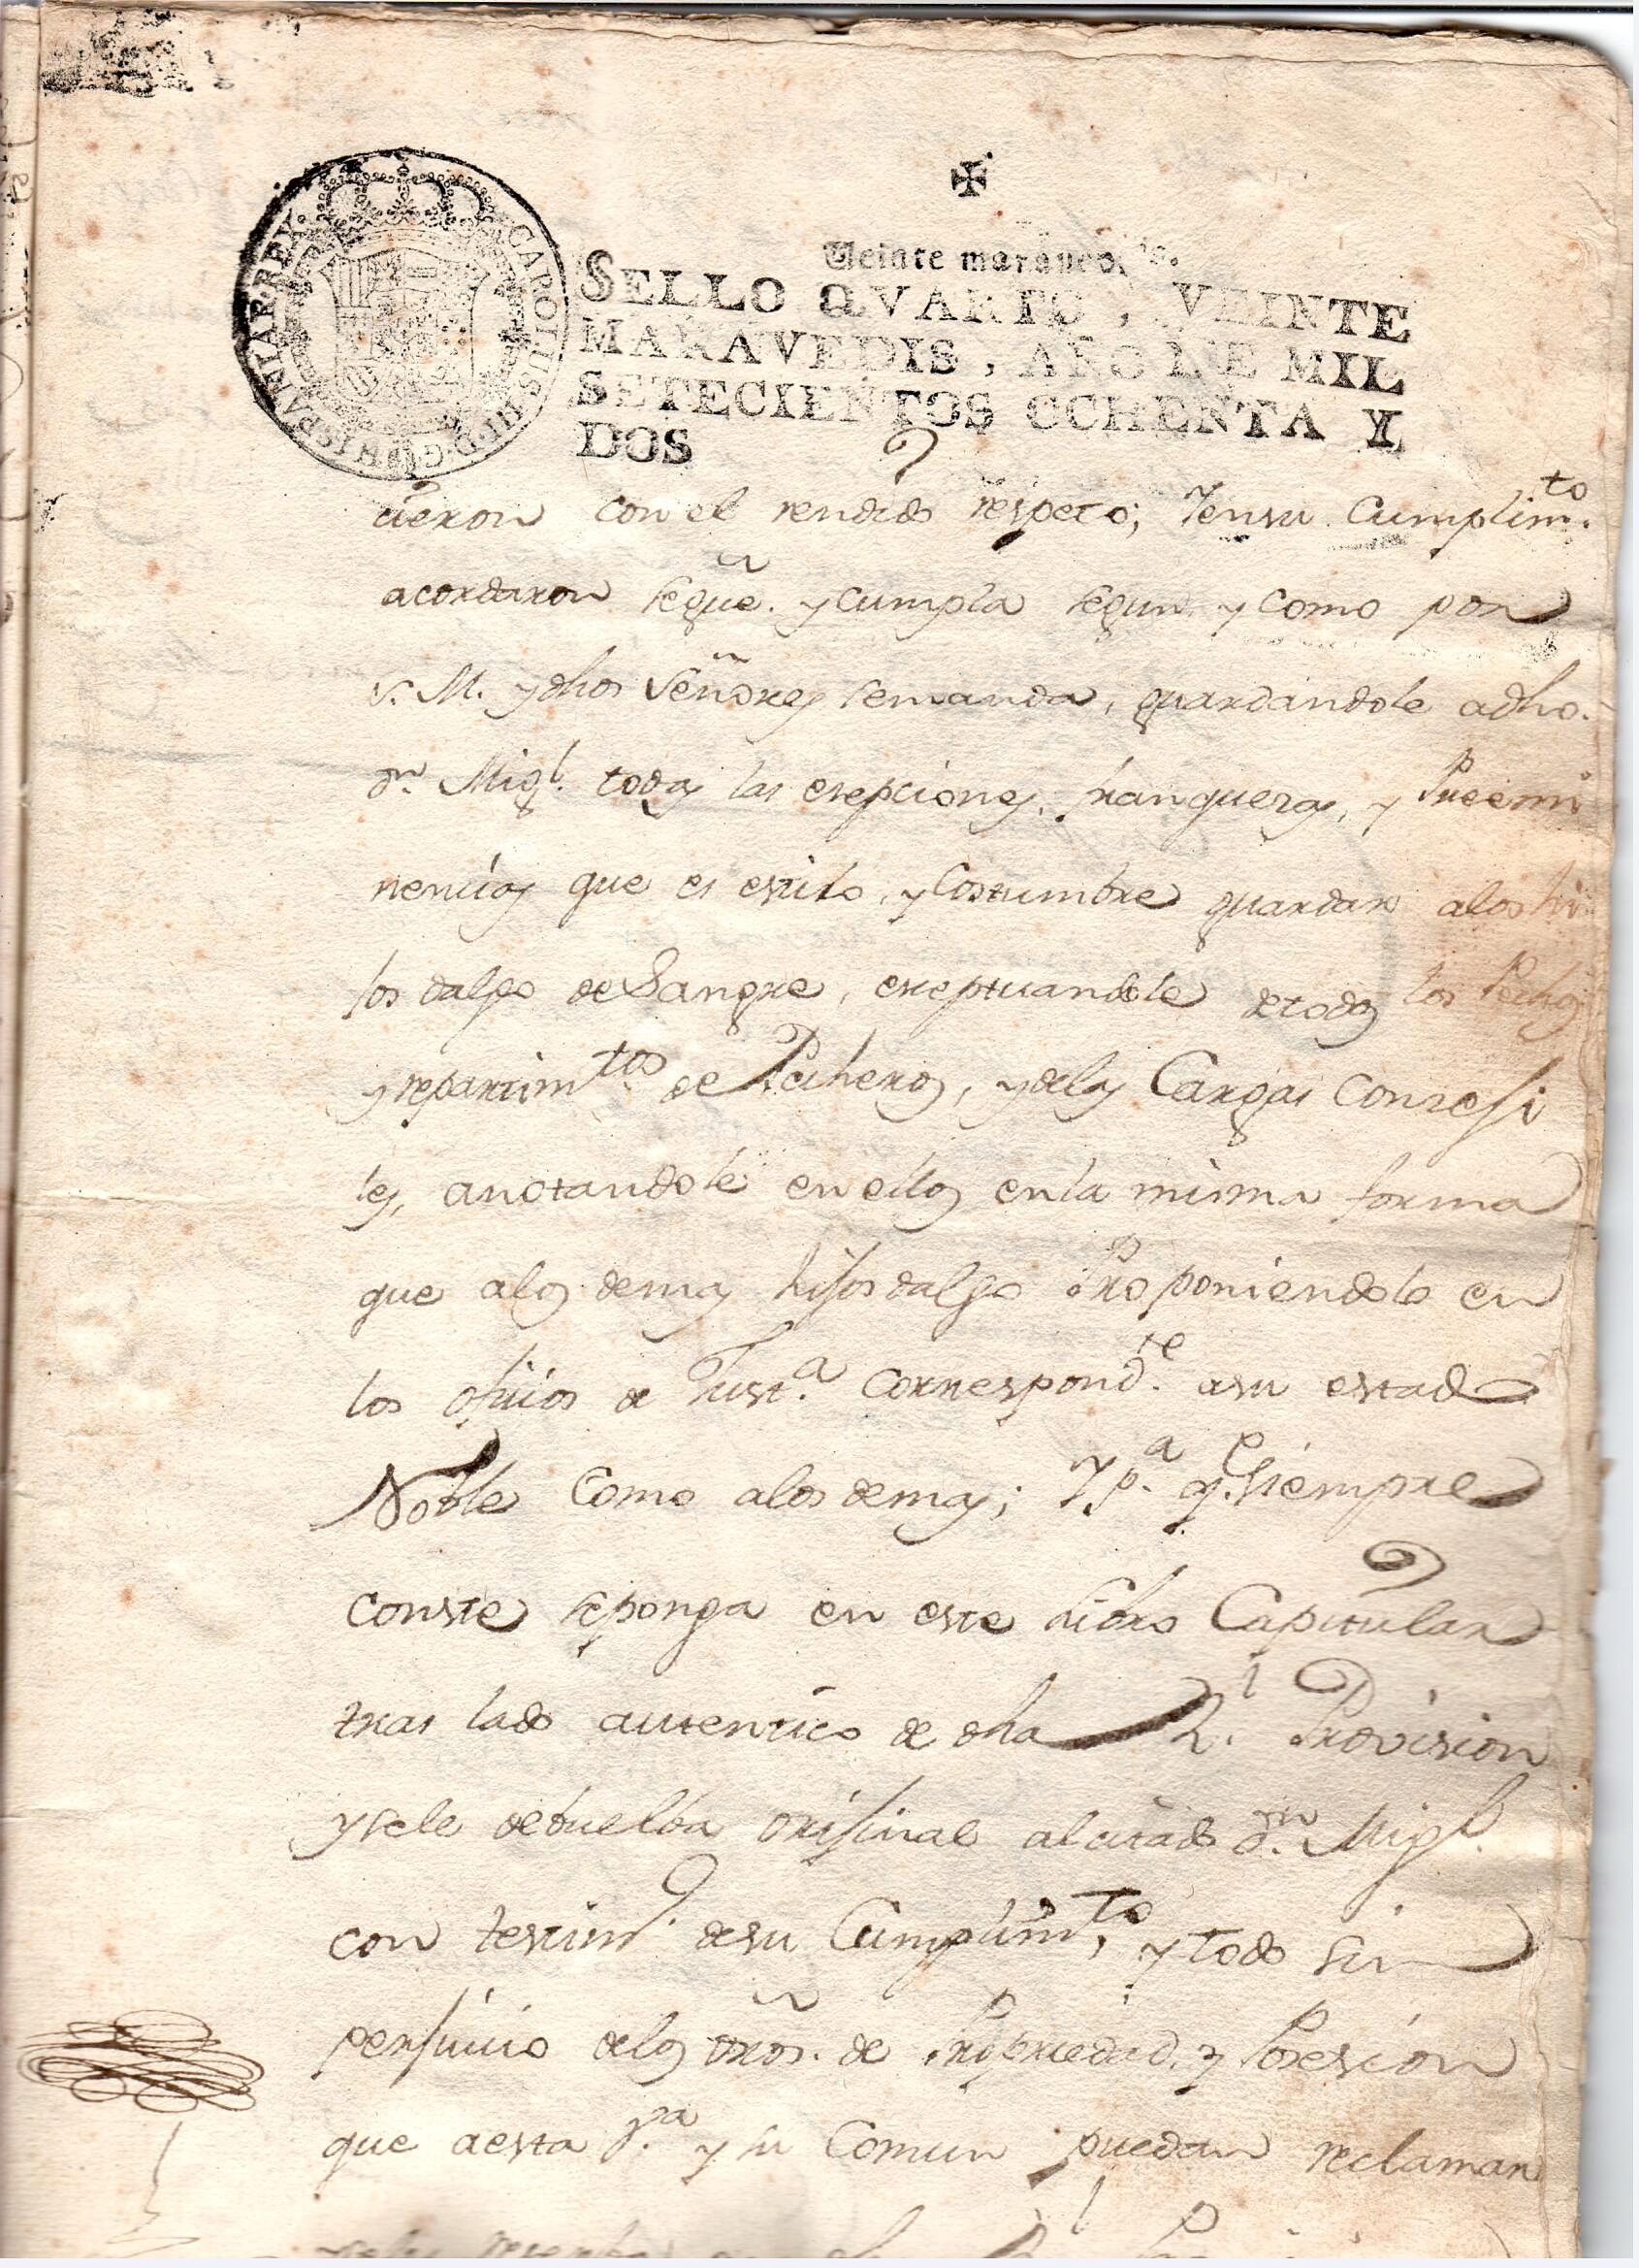 ✠
Veinte maravedis.
CAROLUS III D G HISPANIAR REX
SELLO QVARTO, VEINTE
MARAVEDIS, AÑO DE MIL
SETECIENTOS OCHENTA Y
DOS
cieron con el rendido respeto; Y en su Cumplim.to
acordaron se gũe. y cumpla segun y como por
S. M. y dhos Señores se manda, guardandole a dho.
Dn. Migl. todas las esepciones, franquezas, y Preemi
nencias que es estilo, y Costumbre guardar a los hi
jos dalgo de Sangre, eseptuandole de todos los Pechos
y repartimtos. de Pecheros, y de las Cargas Consegi
les, anotandole en ellos en la misma forma
que a los demas hijos dalgo Proponiendole en
los ofiicios de Just.a correspond.te a su estado
Noble como a los demas; Y p.a q.e siempre
conste se ponga en este Libro Capitular
tras lado autentico de dha R.l Provision
y se le debuelba orijinal al citado Dn. Migl.
con testim.o de su Cumplimto, y todo sin
perjuicio de los dr̃os. de Propriedad, y Posesion
que a esta V.a y su Comun puedan reclamar